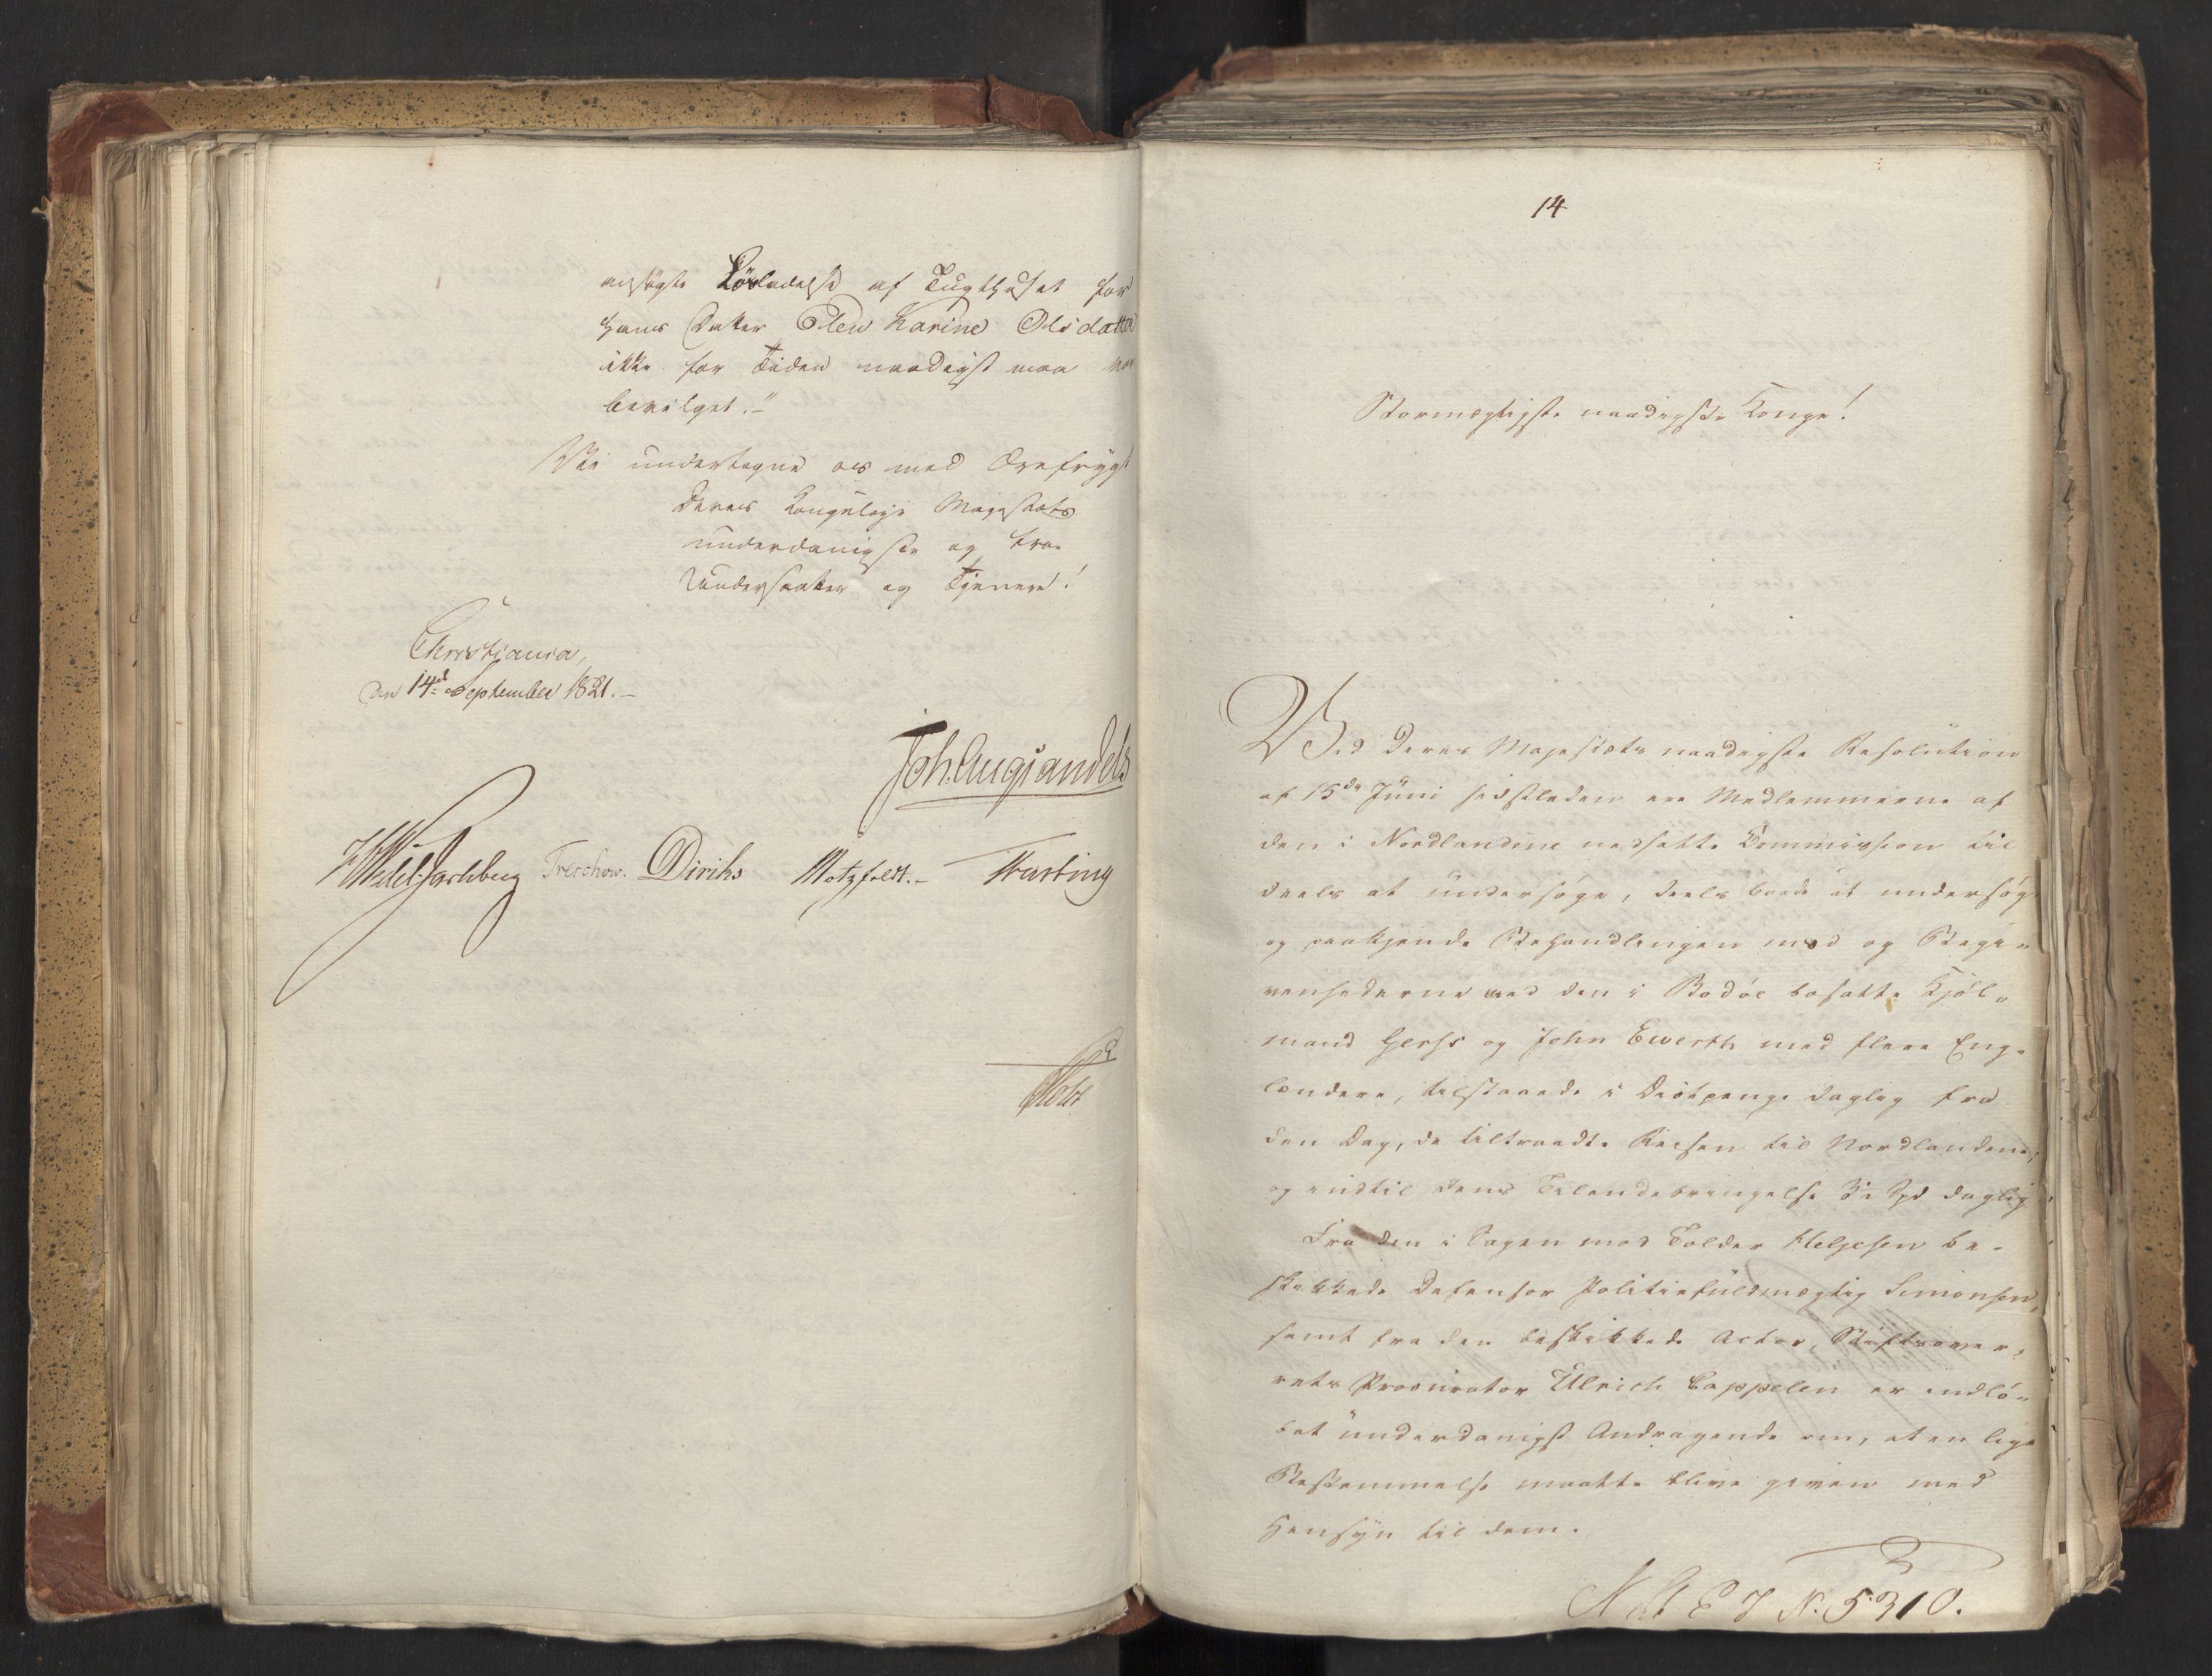 ansøgte Løsladelse af Tugthuset for
hans Datter Olea Karine Olsdatter
ikke for Tiden naadigst maa vorde
bevilget.-"
Vi undertegne os med Ærefrygt
Deres Kongelige Majestæts
underdanigste og troe
Undersaatter og Tjenere!
Christiania,
den 14de September 1821.-
Joh. Aug. Sandels
Treschow. Diriks Motzfeldt.- Fasting
Holst
14
Stormægtigste naadigste Konge!
Ved Deres Majestæts naadigste Resolution
af 15de Juni sidstleden ere Medlemmerne af
den i Nordlandene nedsatte Kommission til
deels at undersøge, deels baade at undersøge
og paakjende Behandlingen med og Begi-
venhederne ved den i Bodøe bosatte Kjøb-
mand Gerss og John Everth med flere Eng-
lændere, tilstaaede i Diætpenge daglig fra
den Dag, de tiltraadte Reisen til Nordlandene,
og indtil dens Tilendebringelse 3½ Spd daglig
Fra den i Sagen mod Tolder Helgesen be-
skikkede Defensor Politiefuldmægtig Simonsen,
samt fra den beskikkede Actor, Stiftsover-
rets Procurator Ulrich Cappelen er indlø-
bet underdanigst Andragende om, at en lige
Bestemmelse maatte blive given med
Hensyn til dem.
N. 5310.